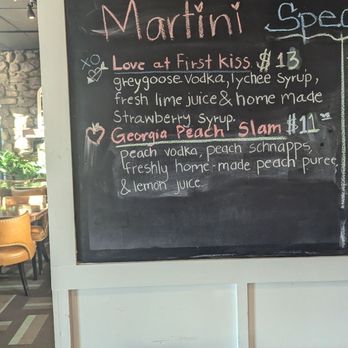 Martini Spec
XO Love at First Kiss $13
greygoose vodka, lychee syrup,
fresh lime juice & home made
Strawberry syrup.
Georgia Peach Slam $11
peach vodka, peach schnapps,
freshly home-made peach puree,
& lemon juice.